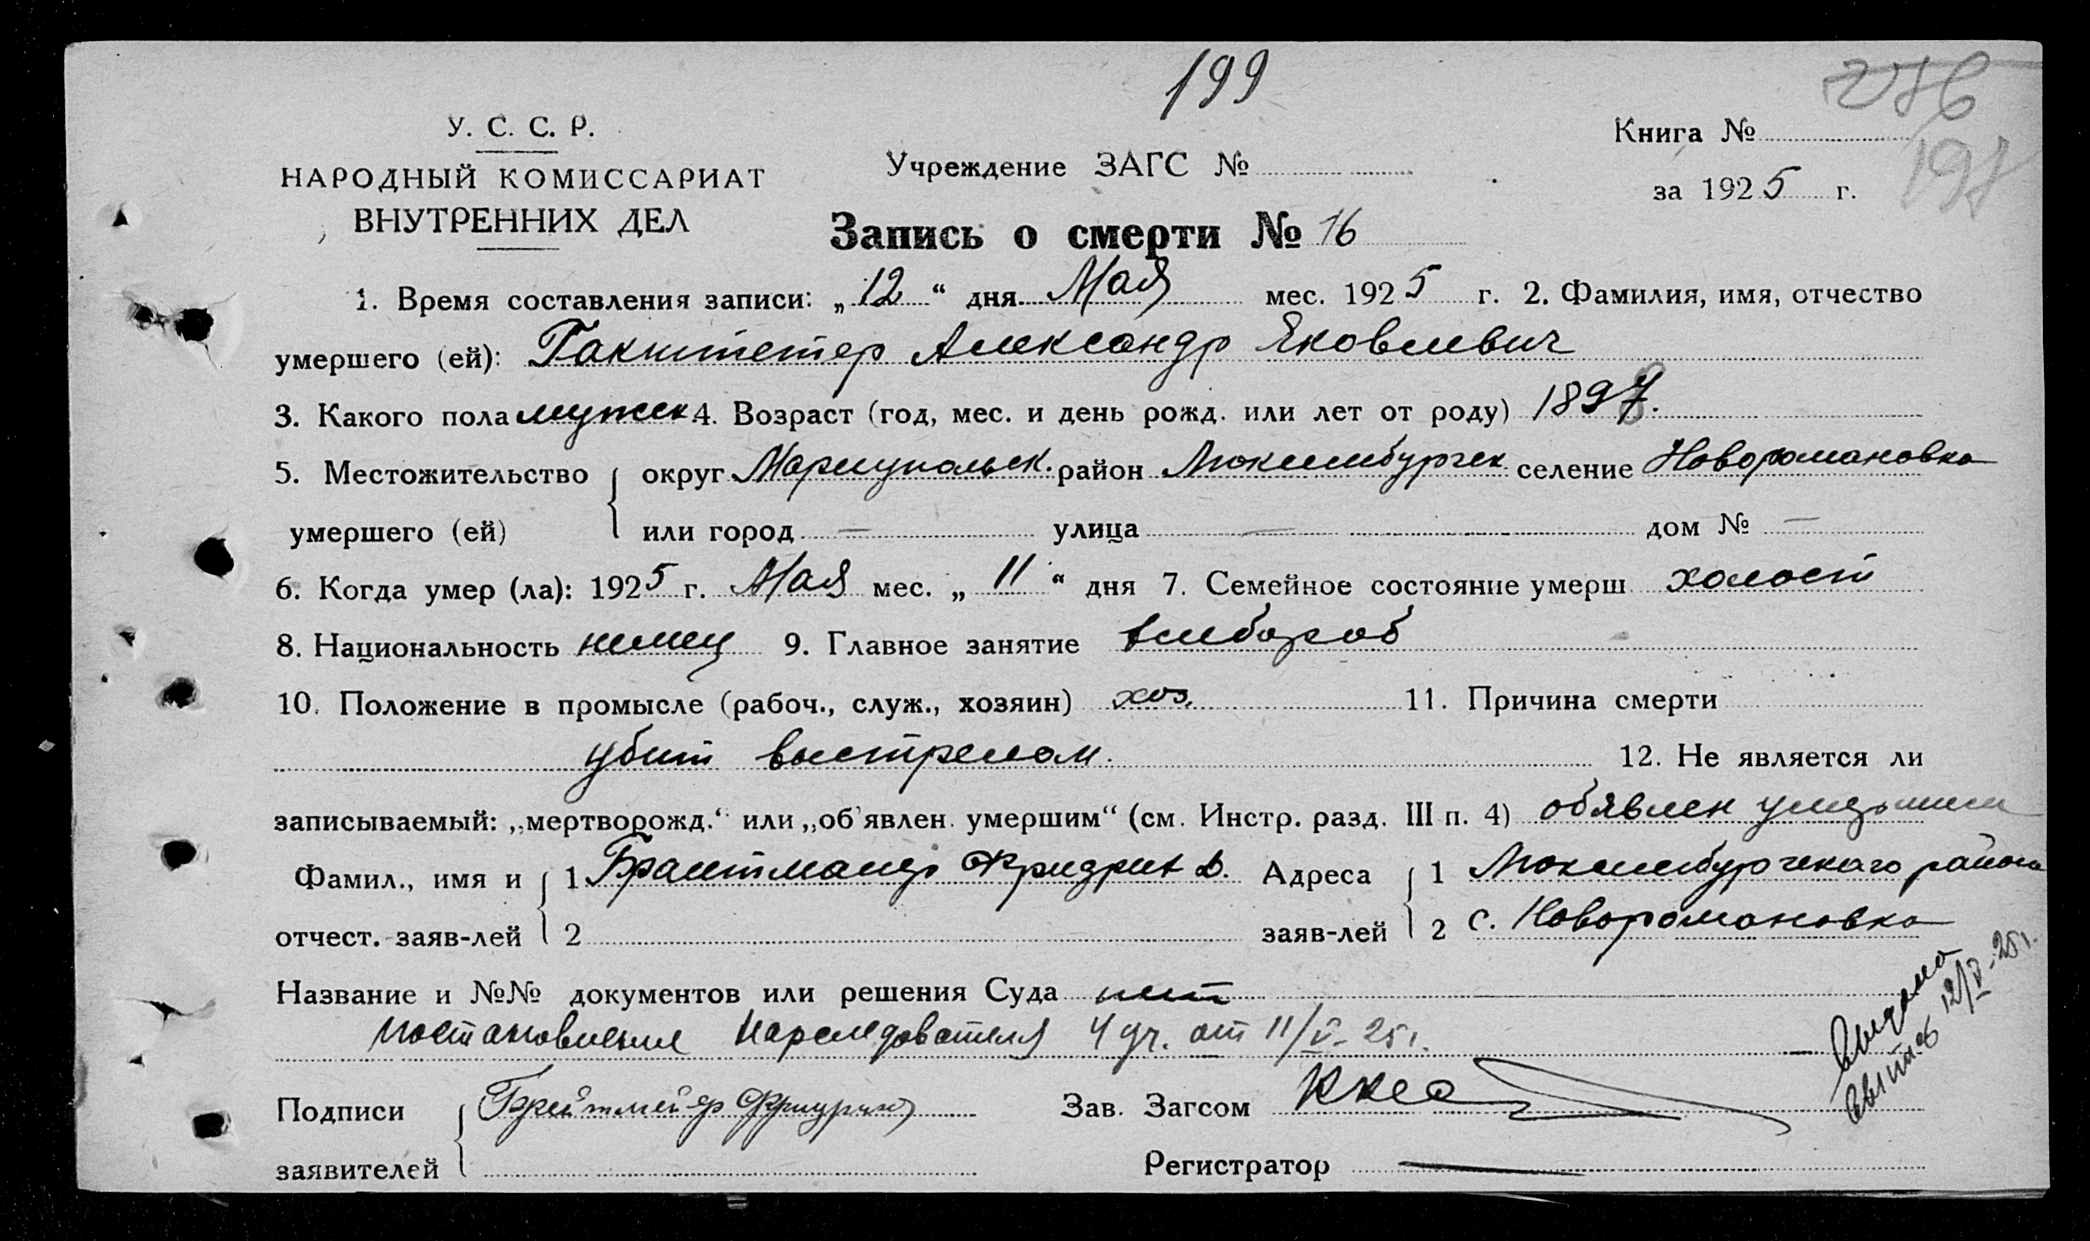 199
276
197
У. С. С. Р.
НАРОДНЫЙ КОМИССАРИАТ
ВНУТРЕННИХ ДЕЛ
Учреждение ЗАГС №
Книга №
за 1925 г.
Запись о смерти № 16
1. Время составления записи: „12“ дня Мая мес. 1925 г. 2. Фамилия, имя, отчество
умершего (ей): Гакштетер Александр Яковлевич
3. Какого пола мужск 4. Возраст (год, мес. и день рожд. или лет от роду) 1897.
5. Местожительство умершего (ей) округ Мариупольск. район Люксембургск селение Новоромановка
или город — улица — дом № —
6. Когда умер (ла): 1925 г. Мая мес. „11“ дня 7. Семейное состояние умерш холост
8. Национальность немец 9. Главное занятие хлебороб
10. Положение в промысле (рабоч., служ., хозяин) хоз. 11. Причина смерти
убит выстрелом. 12. Не является ли
записываемый: „мертворожд.“ или „об'явлен умершим“ (см. Инстр. разд. III п. 4) обявлен умершим
Фамил., имя и отчест. заяв-лей 1 Фридрих Адреса заяв-лей 1 Люксембургского района
2 2 с. Новоромановка
Название и №№ документов или решения Суда нет
постановление Нарследователя 4 уч. от 11/V-25 г.
Выдана
12/V-25 г.
Подписи заявителей Брейтмейер Фридрих Зав. Загсом
Регистратор